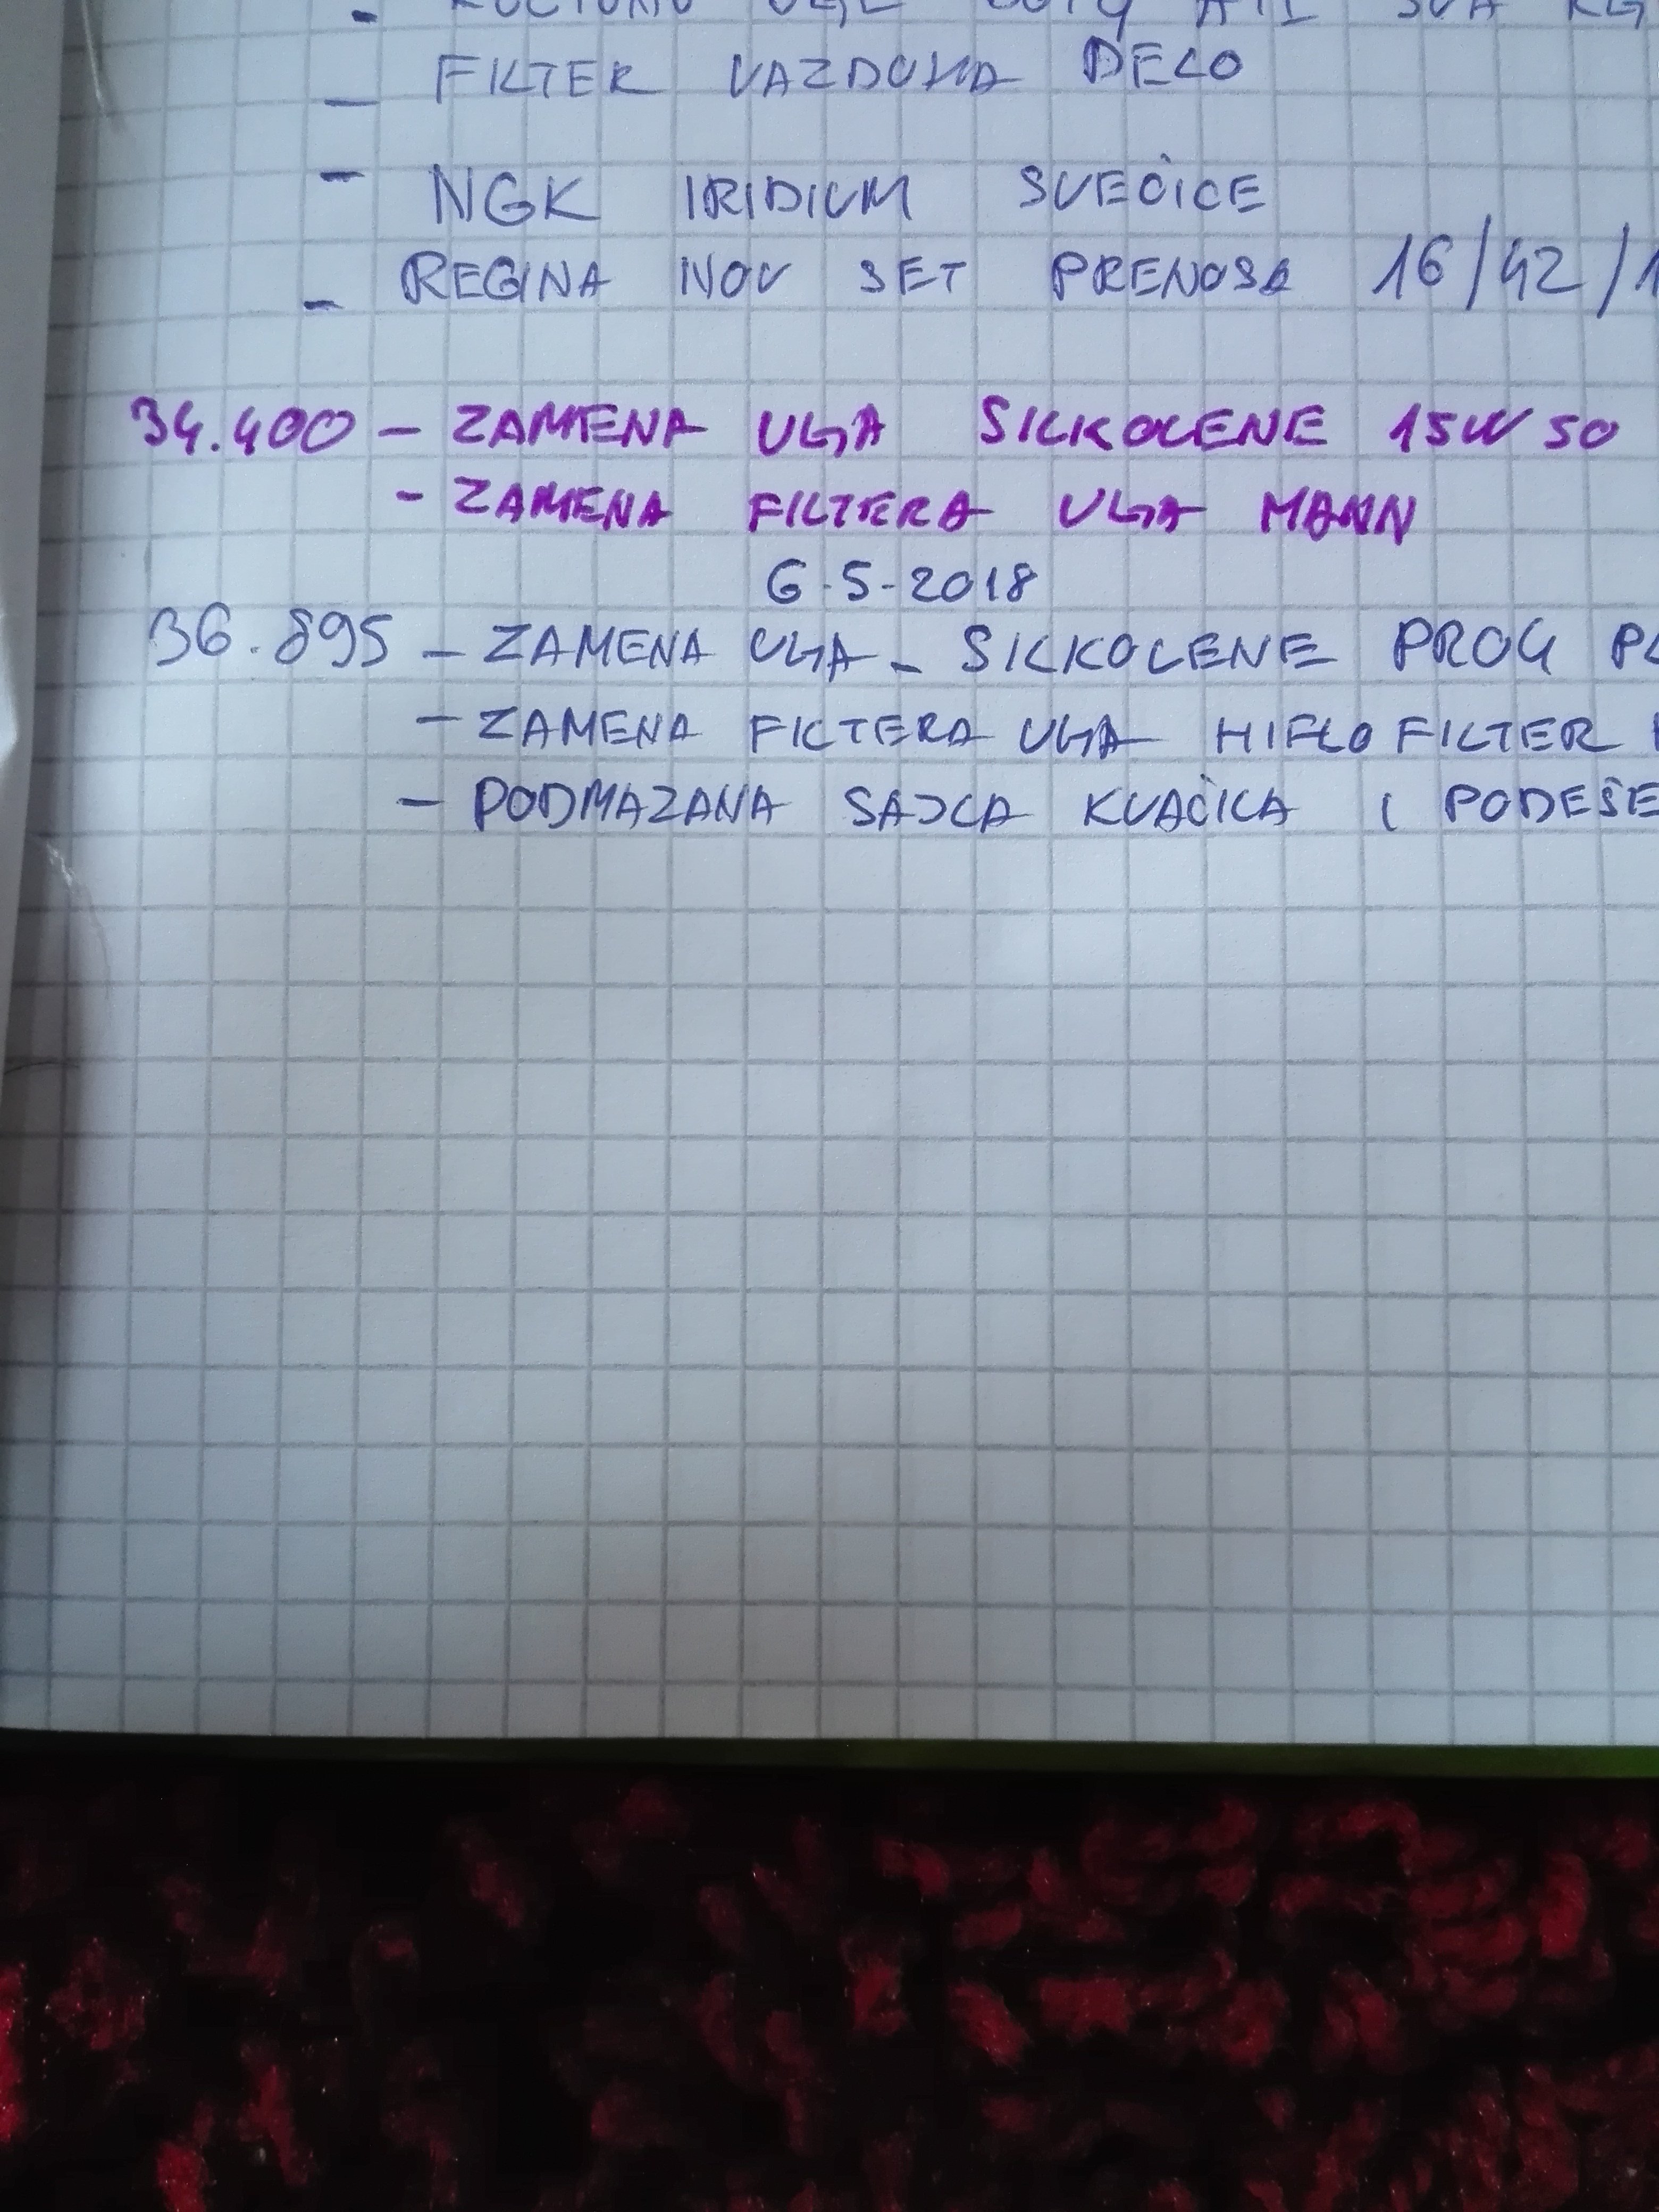 - FILTER VAZDUHA DELO
- NGK IRIDIUM SVEĆICE
- REGINA NOV SET PRENOSA 16/42/1
34.400 - ZAMENA ULJA SILKOLENE 15W50
- ZAMENA FILTERA ULJA MANN
6-5-2018
36.895 - ZAMENA ULJA - SILKOLENE PRO4
- ZAMENA FILTERA ULJA HIFLO FILTER
- PODMAZANA SAJLA KVAČILA I PODEŠE